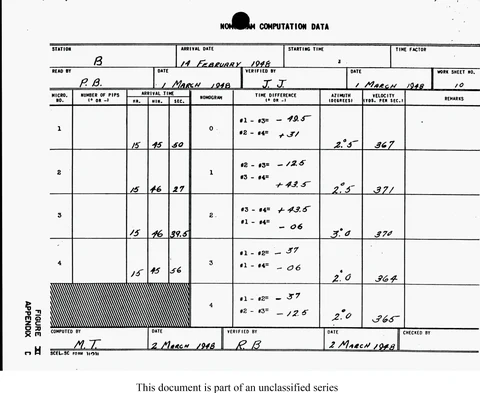 NOMOGRAM COMPUTATION DATA
STATION ARRIVAL DATE STARTING TIME TIME FACTOR
B 14 FEBRUARY 1948
READ BY DATE VERIFIED BY DATE WORK SHEET NO.
P.B. 1 MARCH 1948 J.J. 1 MARCH 1948 10
MICRO. NO. NUMBER OF PIPS (+ OR -) ARRIVAL TIME NOMOGRAM TIME DIFFERENCE (+ OR -) AZIMUTH (DEGREES) VELOCITY (YDS. PER SEC.) REMARKS
HR. MIN. SEC.
#1 - #3= - 49.5
1 0
#2 - #4= + 31
15 45 50 2.°5 367
#2 - #3= - 12.5
2 1
#3 - #4=
15 46 27 + 43.5 2.°5 371
3 2 #3 - #4= + 43.5
#1 - #4=
15 46 39.5 - 06 3.°0 370
#1 - #2= - 37
4 3
#1 - #4= - 06
15 45 56 2.°0 364
#1 - #2= - 37
4
#2 - #3= - 12.5
2.°0 365
COMPUTED BY DATE VERIFIED BY DATE CHECKED BY
M.T. 2 MARCH 1948 R.B 2 MARCH 1948
FIGURE II
APPENDIX C
This document is part of an unclassified series